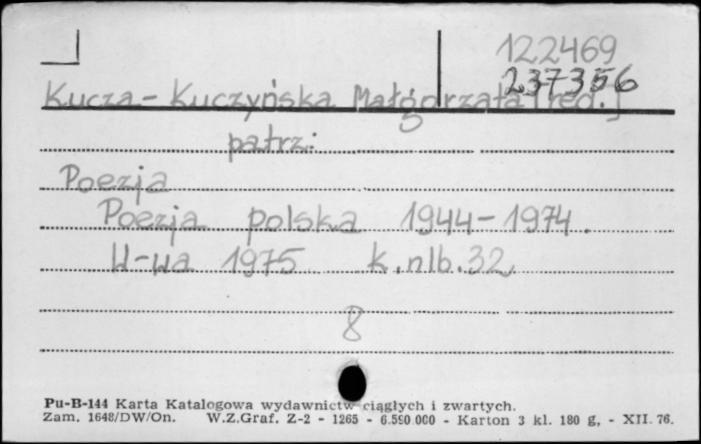 122469
237356
Kucza-Kuczyńska Małgorzata [red.]
patrz:
Poezja
Poezja polska 1944-1974.
W-wa 1975 k.nlb.32
8
Pu-B-144 Karta Katalogowa wydawnictw ciągłych i zwartych.
Zam. 1648/DW/On. W.Z.Graf. Z-2 - 1265 - 6.590 000 - Karton 3 kl. 180 g, - XII. 76.